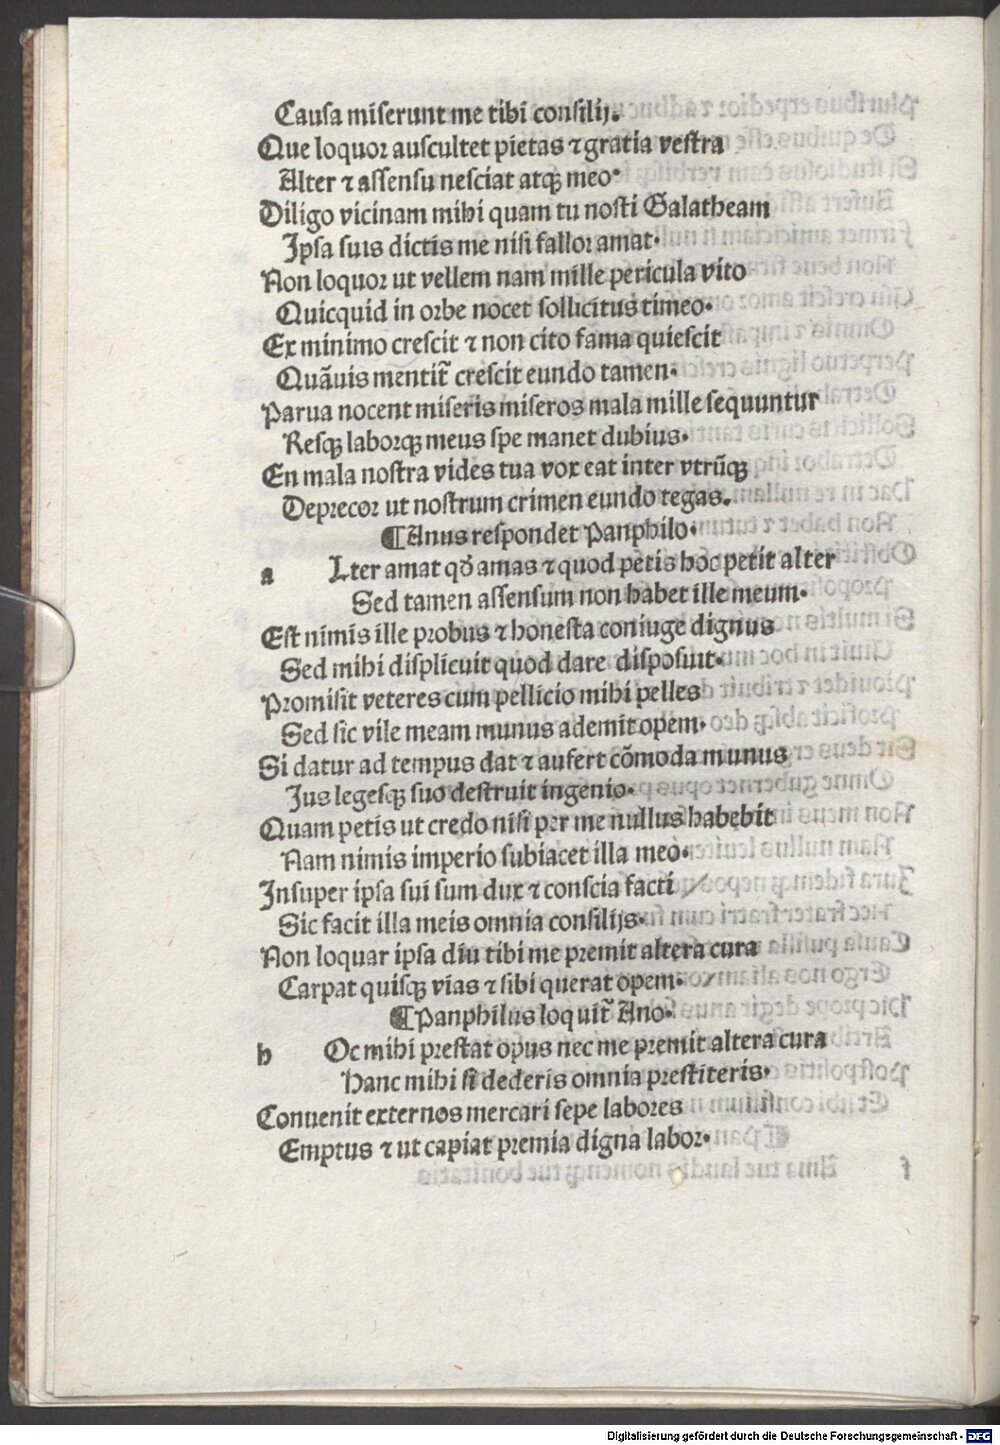 Causa miserunt me tibi consilij.
Que loquor auscultet pietas ⁊ gratia vestra
Alter ⁊ assensu nesciat atqꝫ meo·
Diligo vicinam mihi quam tu nosti Galatheam
Ipsa suis dictis me nisi fallor amat·
Non loquor ut vellem nam mille pericula vito
Quicquid in orbe nocet sollicitus timeo·
Ex minimo crescit ⁊ non cito fama quiescit
Quãuis mentit̃ crescit eundo tamen·
Parua nocent miseris miseros mala mille sequuntur
Resqꝫ laborqꝫ meus spe manet dubius·
En mala nostra vides tua vox eat inter vtrũqꝫ
Deprecor ut nostrum crimen eundo tegas.
¶Anus respondet Panphilo·
a Lter amat qð amas ⁊ quod petis hoc petit alter
Sed tamen assensum non habet ille meum·
Est nimis ille probus ⁊ honesta coniuge dignus
Sed mihi displicuit quod dare disposuit·
Promisit veteres cum pellicio mihi pelles
Sed sic vile meam munus ademit opem·
Si datur ad tempus dat ⁊ aufert cõmoda munus
Jus legesqꝫ suo destruit ingenio·
Quam petis ut credo nisi per me nullus habebit
Nam nimis imperio subiacet illa meo·
Insuper ipsa sui sum dux ⁊ conscia facti
Sic facit illa meis omnia consilijs·
Non loquar ipsa diu tibi me premit altera cura
Carpat quisqꝫ vias ⁊ sibi querat opem·
¶Panphilus loquit̃ Ano·
h Oc mihi prestat opus nec me premit altera cura
Hanc mihi si dederis omnia prestiteris·
Conuenit externos mercari sepe labores
Emptus ⁊ ut capiat premia digna labor·
Digitalisierung gefördert durch die Deutsche Forschungsgemeinschaft · DFG